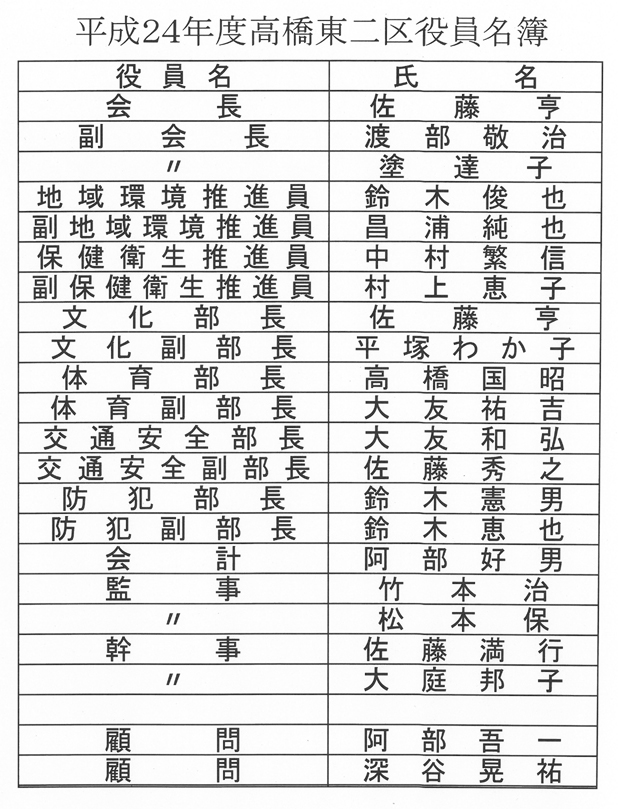 平成24年度高橋東二区役員名簿
役員名 氏名
会長 佐藤亨
副会長 渡部敬治
〃 塗達子
地域環境推進員 鈴木俊也
副地域環境推進員 昌浦純也
保健衛生推進員 中村繁信
副保健衛生推進員 村上恵子
文化部長 佐藤亨
文化副部長 平塚わか子
体育部長 高橋国昭
体育副部長 大友祐吉
交通安全部長 大友和弘
交通安全副部長 佐藤秀之
防犯部長 鈴木憲男
防犯副部長 鈴木恵也
会計 阿部好男
監事 竹本治
〃 松本保
幹事 佐藤満行
〃 大庭邦子
顧問 阿部吾一
顧問 深谷晃祐